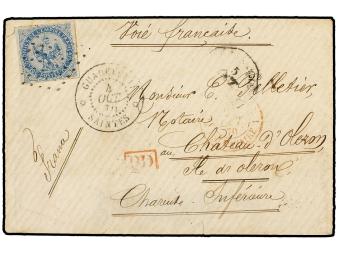 Voie française
GUADELOUPE
4
OCT
SAINTES
5
Monsieur E. Pelletier
Notaire
au Château-d'Oleron
PD
Ile d'oleron
Charente-Inférieure